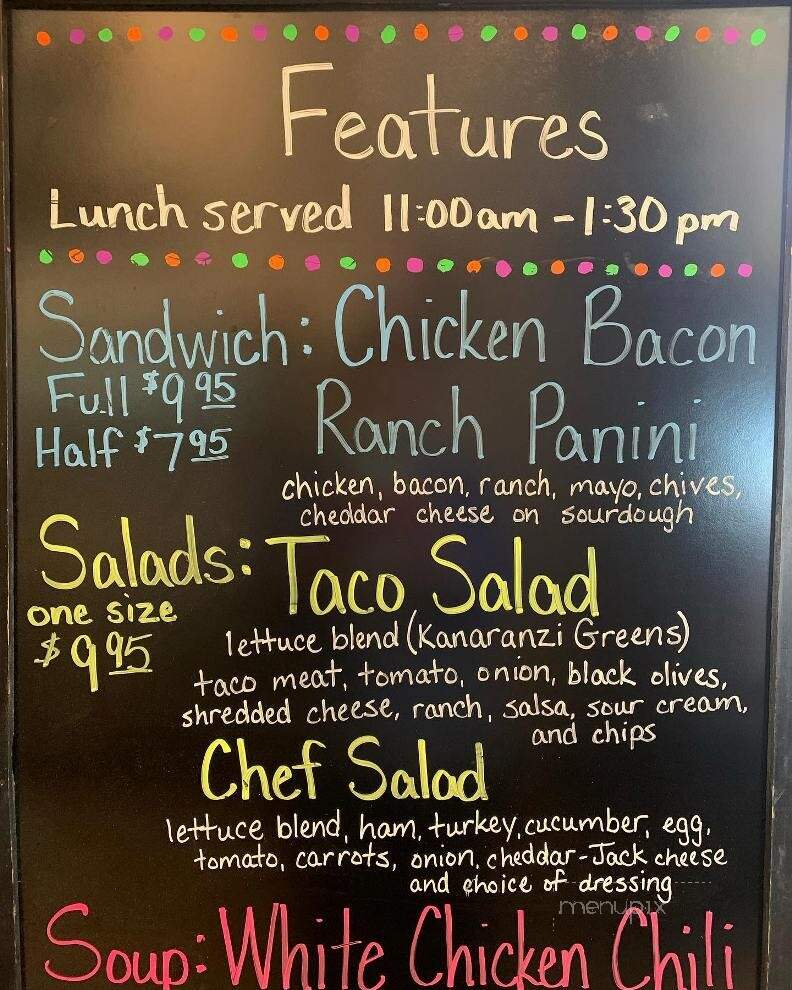 Features
Lunch served 11:00am - 1:30 pm
Sandwich: Chicken Bacon
Full $9.95
Ranch Panini
Half $7.95
chicken, bacon, ranch, mayo, chives,
cheddar cheese on sourdough
Salads: Taco Salad
one size
$9.95
lettuce blend (Kanaranzi Greens)
taco meat, tomato, onion, black olives,
shredded cheese, ranch, salsa, sour cream,
and chips
Chef Salad
lettuce blend, ham, turkey, cucumber, egg,
tomato, carrots, onion, cheddar-Jack cheese
and choice of dressing
menupix
Soup: White Chicken Chili